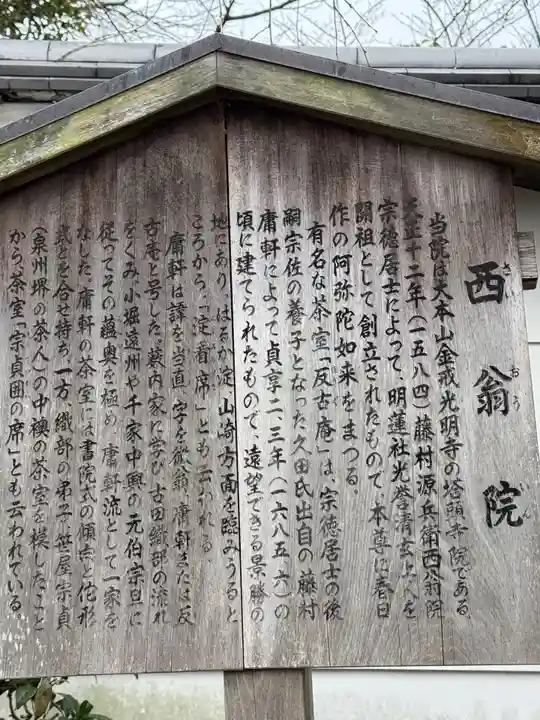 西翁院
さい おう いん
当院は大本山金戒光明寺の塔頭寺院である。
天正十二年（一五八四）藤村源兵衛西翁院
宗徳居士によって、明蓮社光誉清玄上人を
開祖として創立されたもので、本尊に春日
作の阿弥陀如来をまつる。
有名な茶室「反古庵」は、宗徳居士の後
嗣宗佐の養子となった久田氏出自の藤村
庸軒によって貞享二、三年（一六八五、六）の
頃に建てられたもので、遠望できる景勝の
地にあり、はるか淀、山崎方面を臨みうると
ころから、「淀看席」とも云われる。
庸軒は諱を当直、字を微翁、庸軒または反
古庵と号した。藪内家に学び古田織部の流れ
をくみ、小堀遠州や千家中興の元伯宗旦に
従ってその蘊奥を極め、庸軒流として一家を
なした。庸軒の茶室には書院式の傾点と侘形
式とを合せ持ち、一方、織部の弟子、笹屋宗貞
（泉州堺の茶人）の中襖の茶室を模したこと
から、茶室「宗貞囲の席」とも云われている。